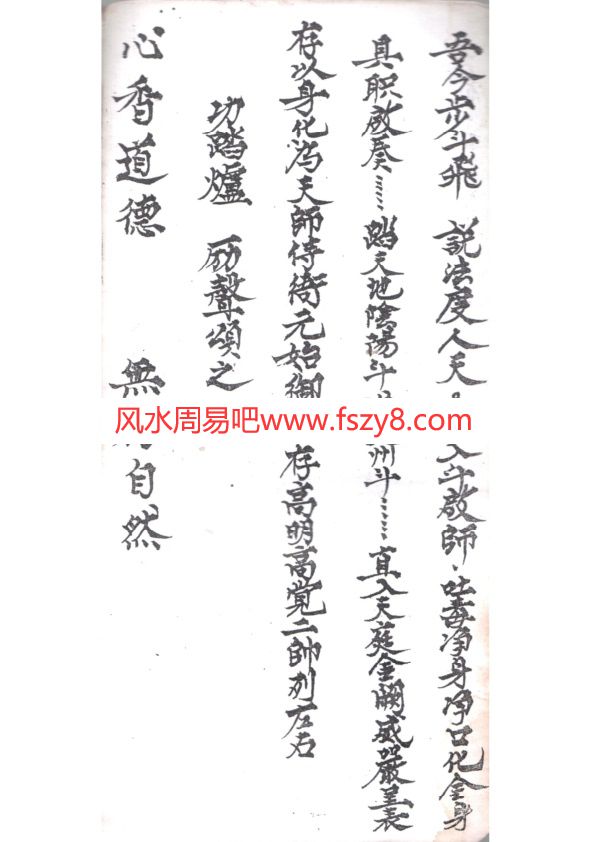 吾今步斗飛 説法度人天 入斗啟師、吐毒净身净口化金身
具职啟奏……踏天地陰陽斗 州斗……直入天庭金闕威嚴呈表
存以身化為天師侍衛元始御 存高明高覚二帥列左右
功踏爐 励聲頌之
心香道德 無 自然
风水周易吧www.fszy8.com